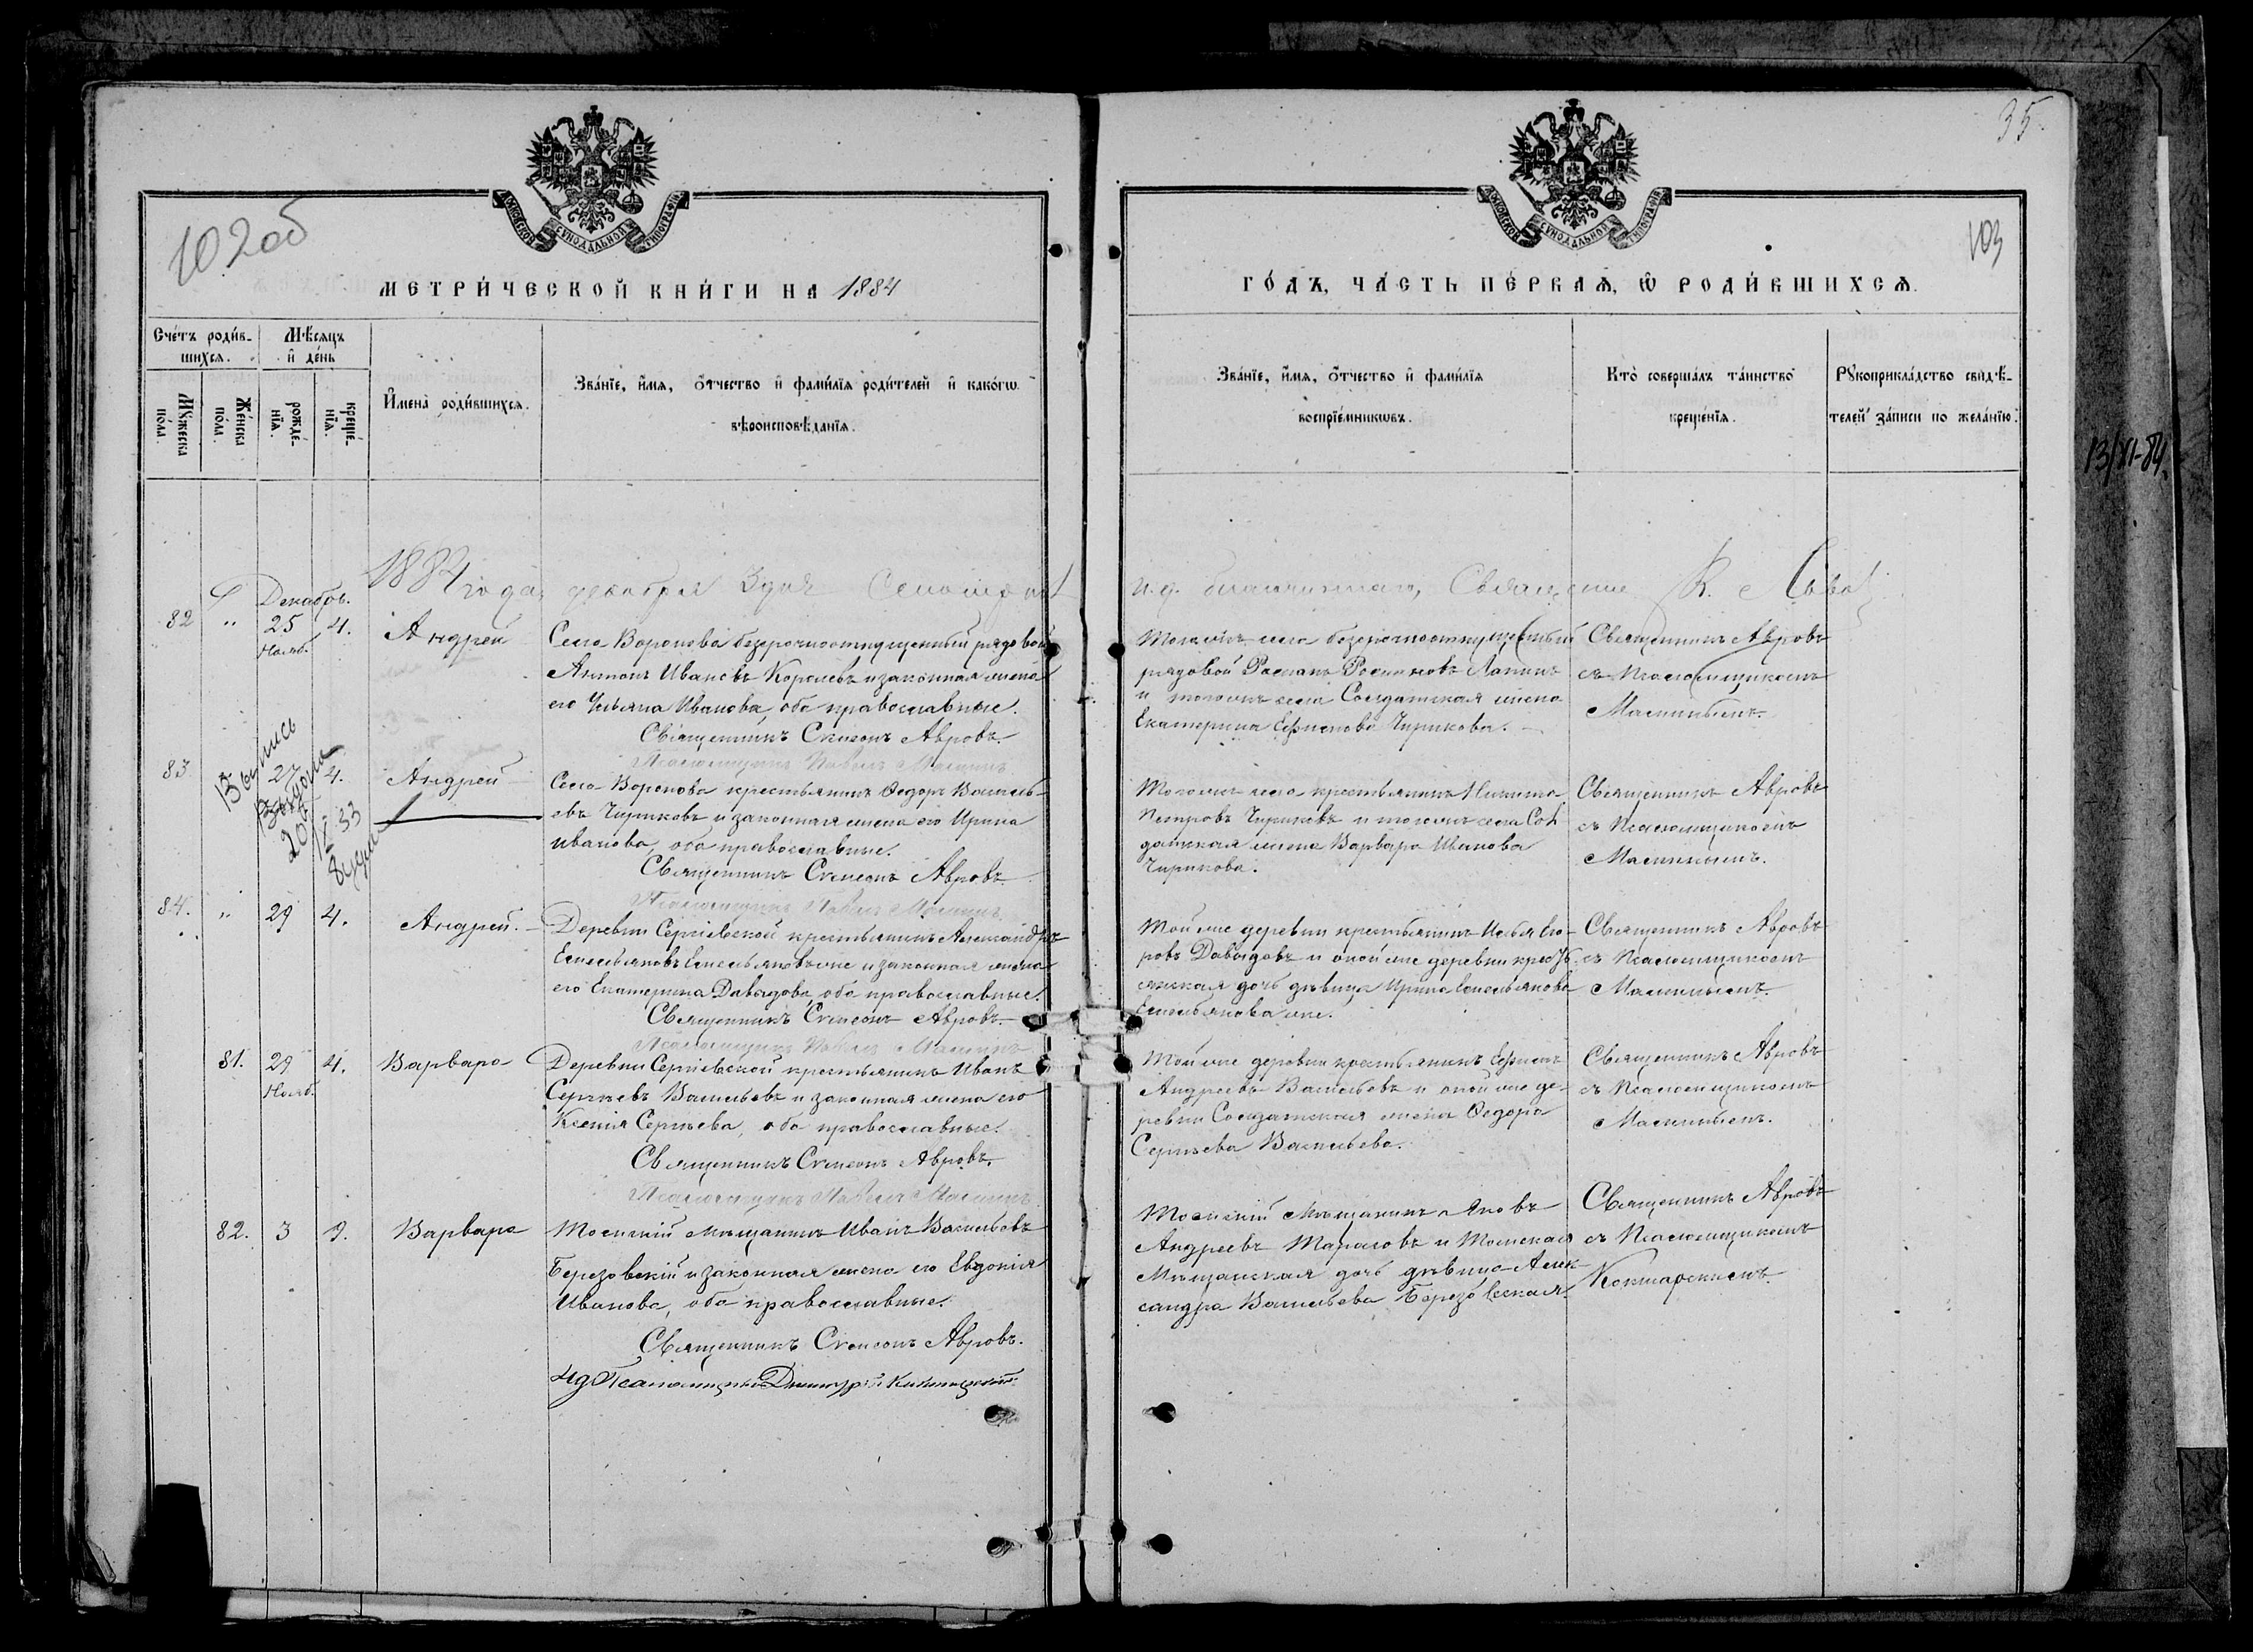 35.
102 об
103
МОСКОВСКОЙ СУНОДАЛЬНОЙ ТИПОГРАФІИ
МОСКОВСКОЙ СУНОДАЛЬНОЙ ТИПОГРАФІИ
МЕТРИ́ЧЕСКОЙ КНИ́ГИ НА 1884
ГО́ДЪ, ЧА́СТЬ ПЕ́РВАѦ, Ѡ҆ РОДИ́ВШИХСѦ.
Сче́тъ роди́в-
шихсѧ.
Мѣ́сѧцъ
и҆ де́нь
Мꙋ́жеска по́ла.
Же́нска по́ла.
рожде́-нїѧ.
креще́-нїѧ.
И҆мена̀ роди́вшихсѧ.
Зва́нїе, и҆́мѧ, ѻ҆́тчество и҆ фамилі́ѧ роди́телей и҆ како́гѡ
вѣроисповѣ́данїѧ.
Зва́нїе, и҆́мѧ, ѻ҆́тчество и҆ фамилі́ѧ
воспрїе́мникѡвъ.
Кто̀ соверша́лъ та́инство
креще́нїѧ.
Рꙋкоприкла́дство свидѣ́-
телей за́писи по жела́нїю.
13/XI-84.
1884 года, декабря 3 дня
и. д. благочиннаго, Священник
Декабрь.
82 " 25 4. Андрей
Нояб.
Села Воронова безсрочноотпущенный рядовой
Антонъ Ивановъ Королевъ и законная жена
его Ульяна Иванова, оба православные.
Священникъ Симеонъ Авровъ.
Псаломщикъ Павелъ Малинъ
Того же села безсрочноотпущенный
рядовой Романъ Романовъ Лапинъ
и того же села Солдатская жена
Екатерина Ефимова Чирикова.
Священникъ Авровъ
съ Псаломщикомъ
Малинымъ.
Выпись
выдана
20/IX 33
83 27 4. Андрей
Села Воронова крестьянинъ Ѳедоръ Василь-
евъ Чириковъ и законная жена его Ирина
Иванова, оба православные.
Священникъ Симеонъ Авровъ
Псаломщикъ Павелъ Малинъ
Того же села крестьянинъ Никита
Петровъ Чириковъ и того же села Сол-
датская жена Варвара Иванова
Чирикова.
Священникъ Авровъ
съ Псаломщикомъ
Малинымъ.
84. " 29 4. Андрей.
Деревни Сергіевской крестьянинъ Александръ
Емельяновъ Емельяновъ же и законная жена
его Екатерина Давыдова, оба православные.
Священникъ Симеонъ Авровъ.
Псаломщикъ Павелъ Малинъ
Той же деревни крестьянинъ Илья Его-
ровъ Давыдовъ и оной же деревни кресть-
янская дочь дѣвица Ирина Емельянова
Емельянова же.
Священникъ Авровъ
съ Псаломщикомъ
Малинымъ.
81. 29 4. Варвара
Нояб.
Деревни Сергіевской крестьянинъ Иванъ
Сергѣевъ Васильевъ и законная жена его
Ксенія Сергѣева, оба православные.
Священникъ Симеонъ Авровъ.
Псаломщикъ Павелъ Малинъ
Той же деревни крестьянинъ Ефимъ
Андреевъ Васильевъ и оной же де-
ревни Солдатская жена Ѳедора
Сергѣева Васильева.
Священникъ Авровъ
съ Псаломщикомъ
Малинымъ.
82. 3 9. Варвара
Томскій Мѣщанинъ Иванъ Васильевъ
Березовскій и законная жена его Евдокія
Иванова, оба православные.
Священникъ Симеонъ Авровъ.
Ид Псаломщика Димитрій
Томскій Мѣщанинъ Яковъ
Андреевъ Тарасовъ и Томская
Мѣщанская дочь дѣвица Алек-
сандра Васильева Березовская.
Священникъ Авровъ
съ Псаломщикомъ